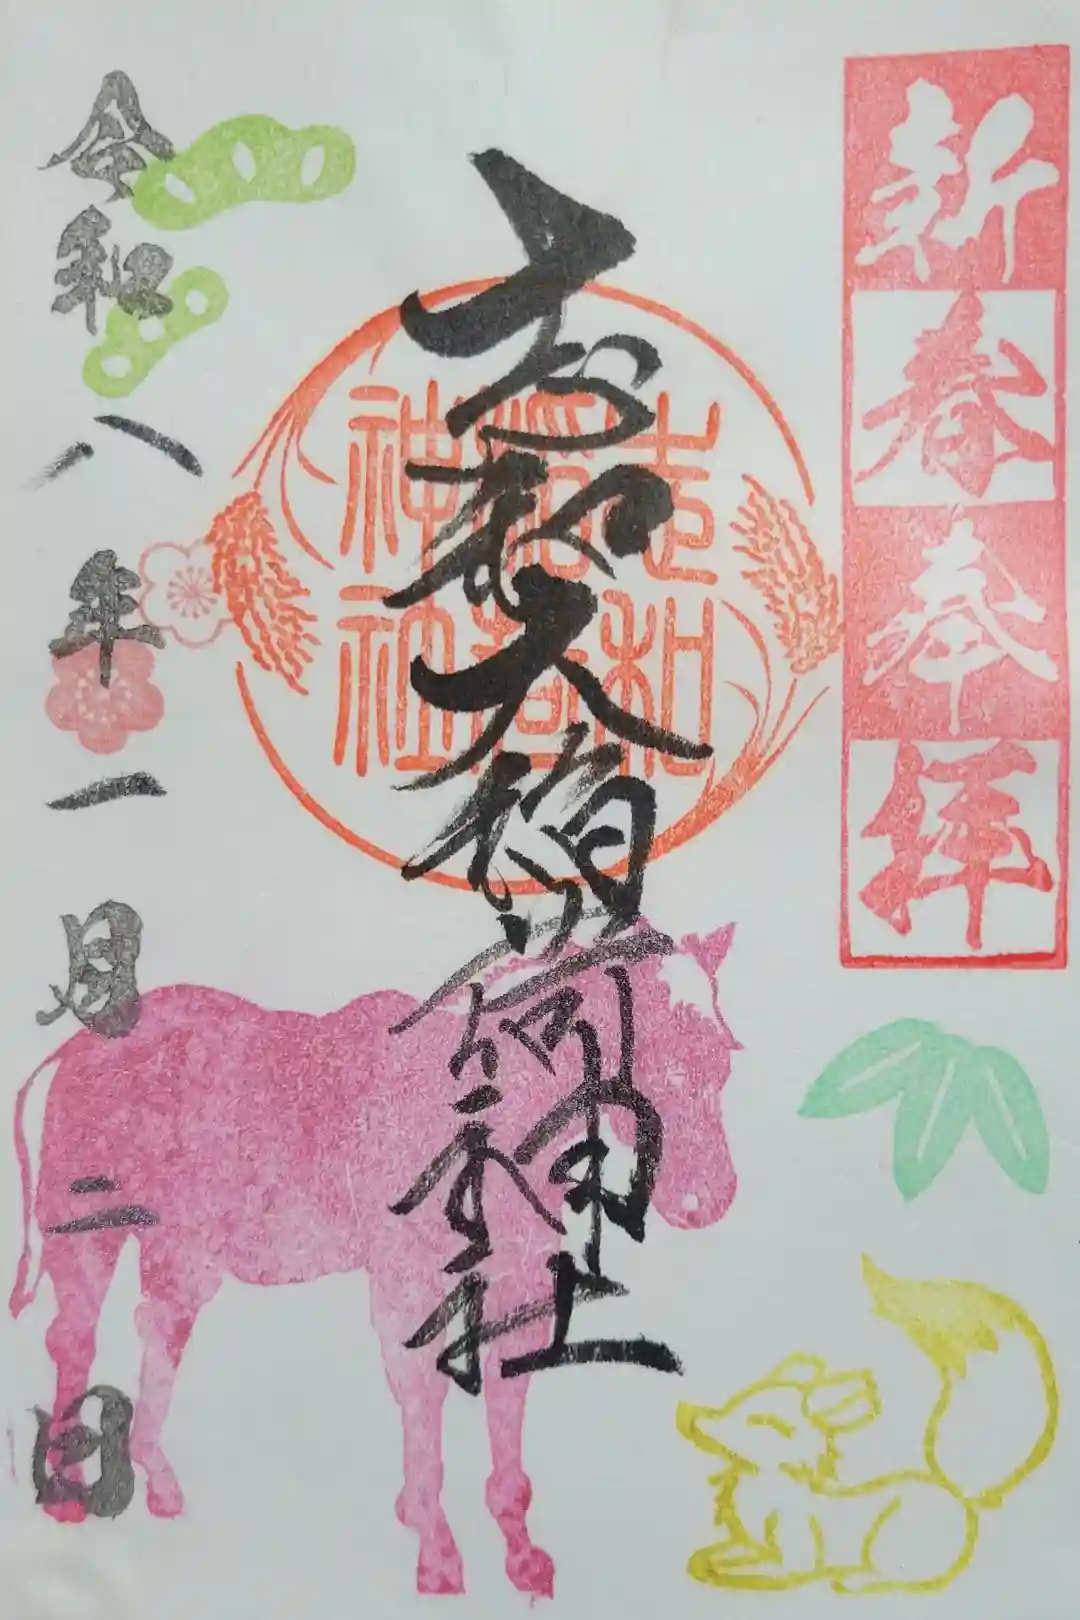 新春奉拝
志和大稲荷神社
志和
稲荷
神社
令和八年一月二日